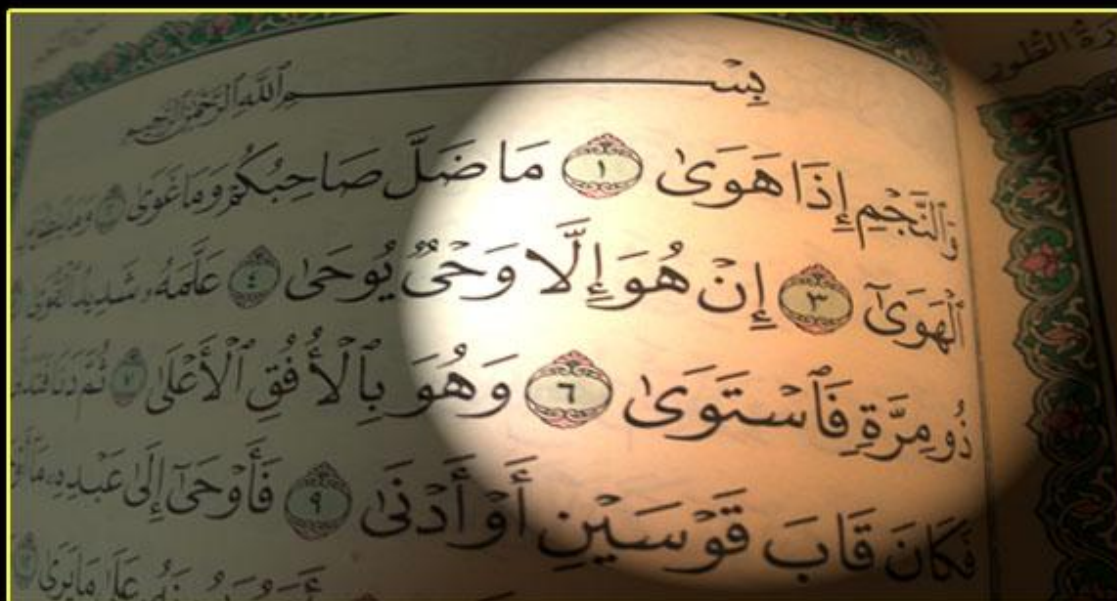 سورة الطور
بِسْمِ ٱللَّهِ ٱلرَّحْمَٰنِ ٱلرَّحِيمِ
وَٱلنَّجْمِ إِذَا هَوَىٰ ١ مَا ضَلَّ صَاحِبُكُمْ وَمَا غَوَىٰ ٢ وَمَا يَنطِقُ
ٱلْهَوَىٰٓ ٣ إِنْ هُوَ إِلَّا وَحْىٌ يُوحَىٰ ٤ عَلَّمَهُۥ شَدِيدُ ٱلْقُوَىٰ
ذُو مِرَّةٍ فَٱسْتَوَىٰ ٦ وَهُوَ بِٱلْأُفُقِ ٱلْأَعْلَىٰ ٧ ثُمَّ دَنَا
فَكَانَ قَابَ قَوْسَيْنِ أَوْ أَدْنَىٰ ٩ فَأَوْحَىٰٓ إِلَىٰ عَبْدِهِۦ
عَلَىٰ مَا يَرَىٰ